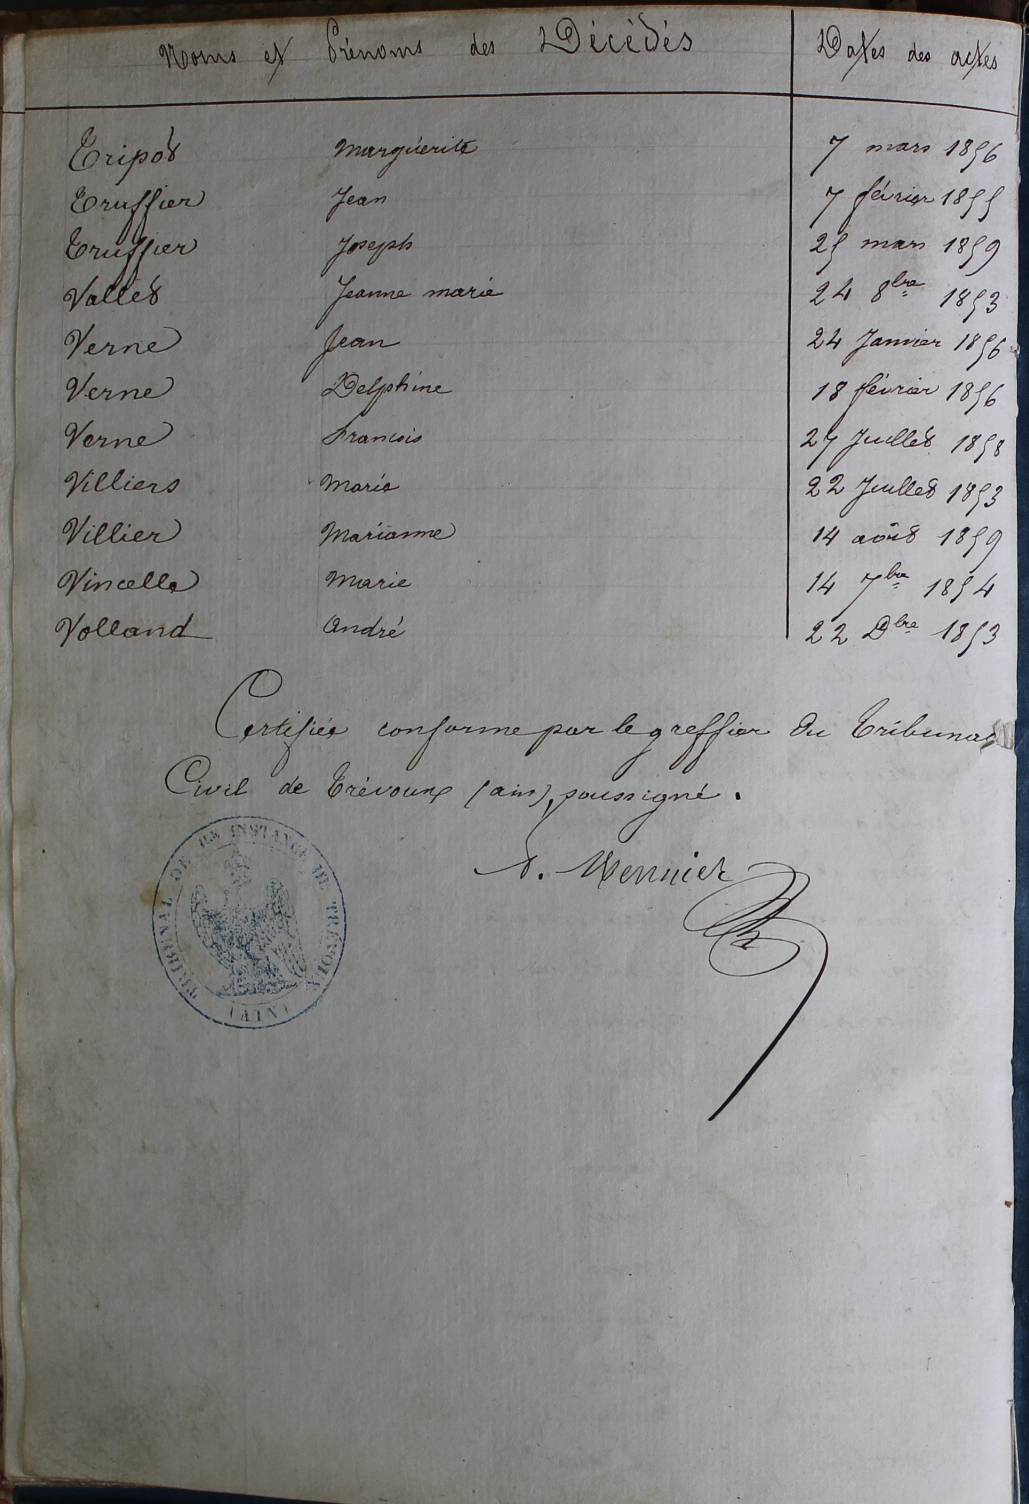 Noms et Prénoms des Décédés Dates des actes
Tripot Marguerite 7 mars 1856
Truffier Jean 7 février 1855
Truffier Joseph 25 mars 1859
Vallet Jeanne marie 24 8bre 1853
Verne Jean 24 Janvier 1856
Verne Delphine 18 février 1856
Verne francois 27 Juillet 1858
Villiers Marie 22 Juillet 1853
Villier Marianne 14 août 1859
Vincelle Marie 14 7bre 1854
Volland André 22 Dbre 1853
Certifiée conforme par le greffier du Tribunal
Civil de Trévoux (ain), soussigné.
Mennier
TRIBUNAL DE 1ER INSTANCE DE TRÉVOUX
(AIN)